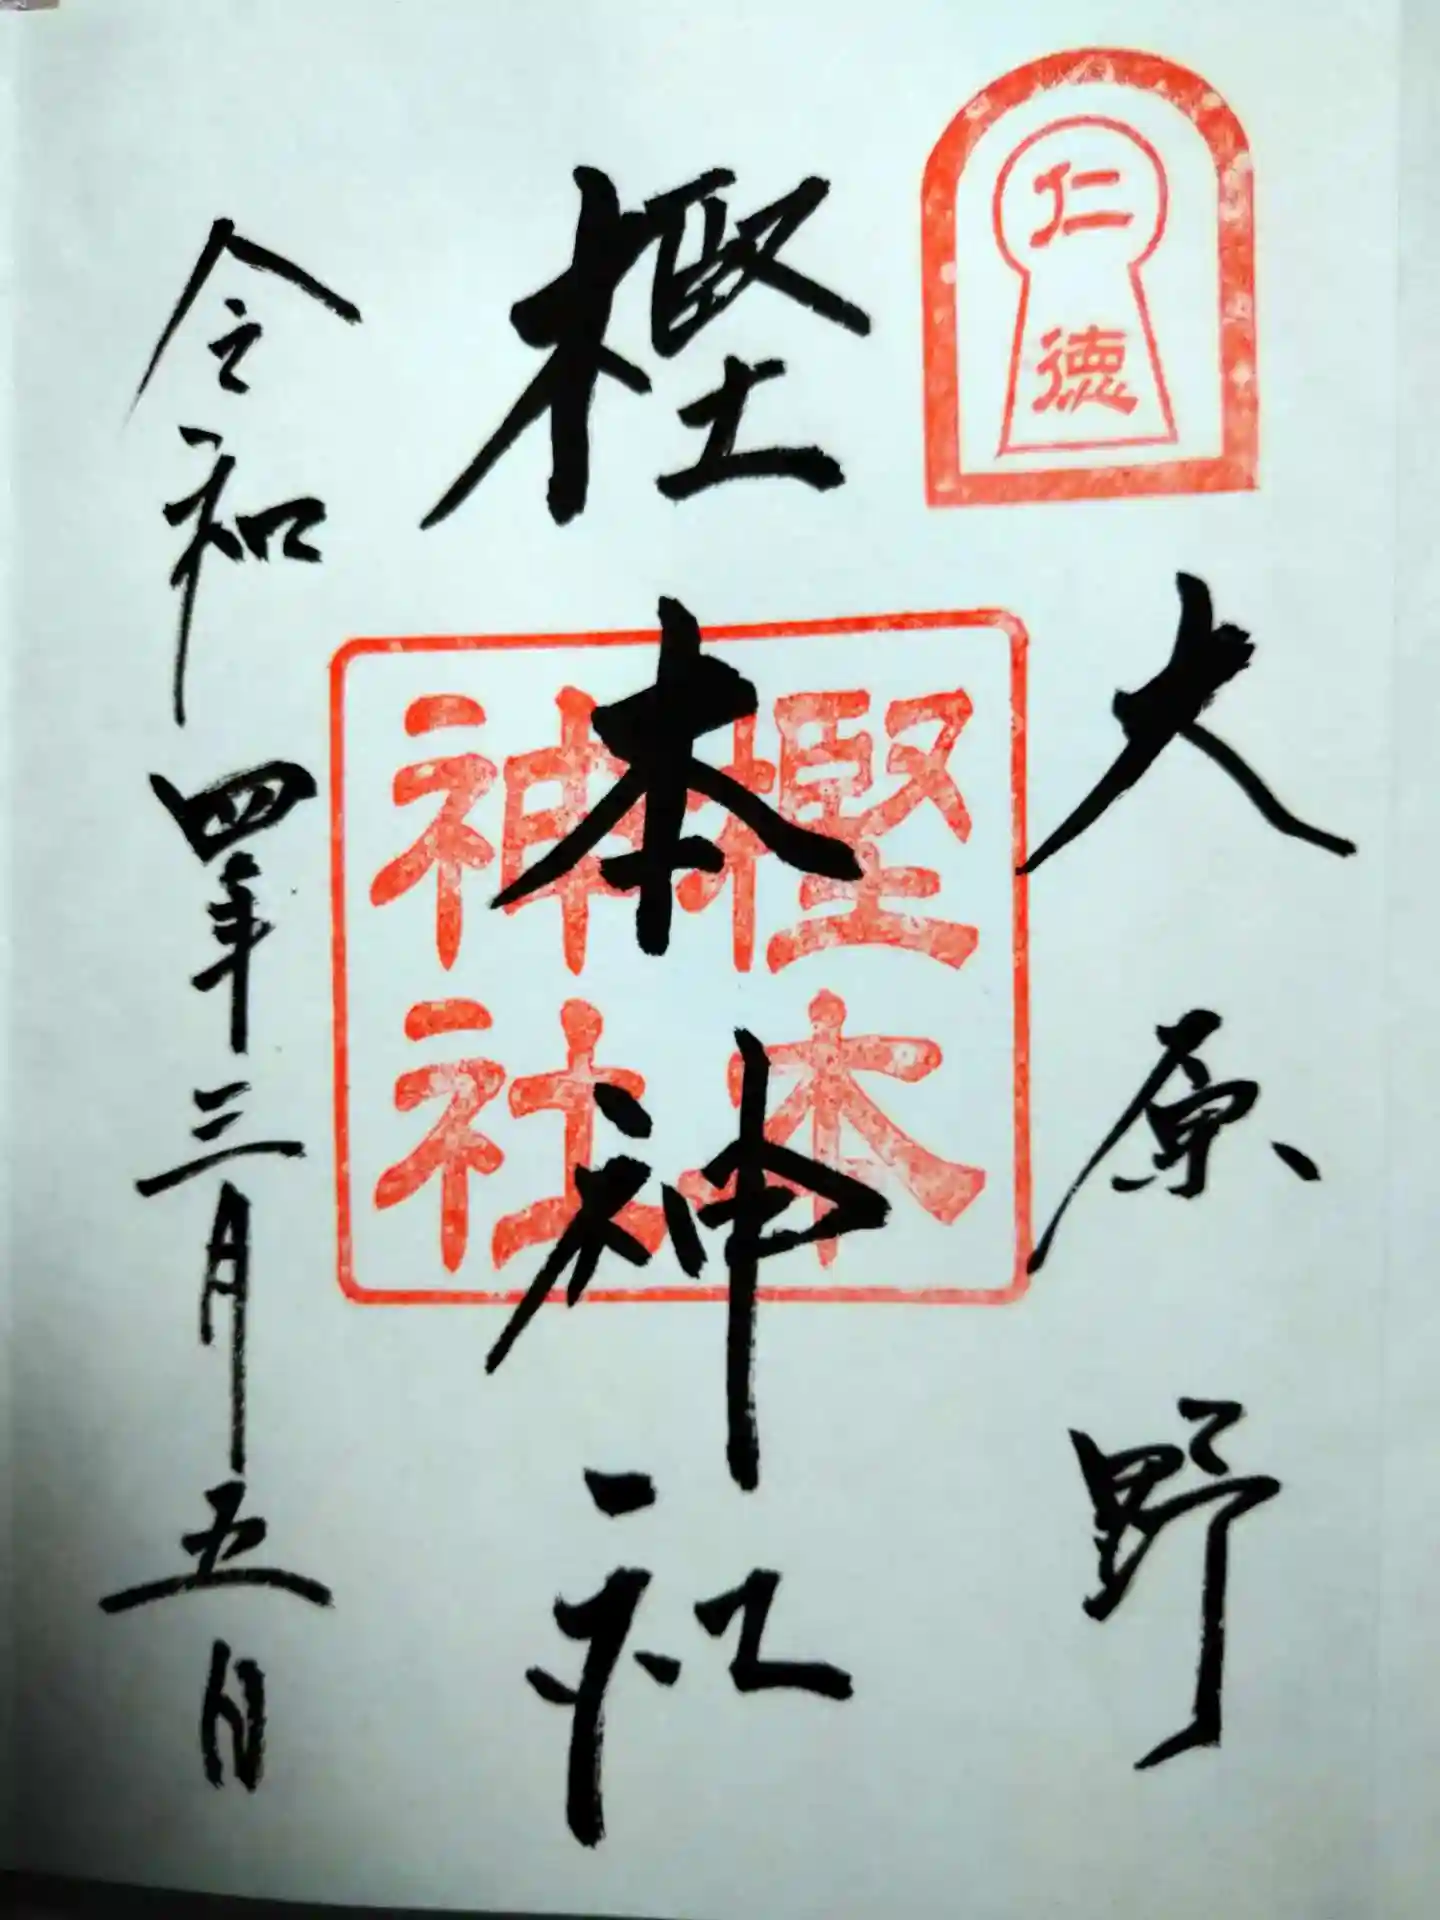 仁
徳
大原野
樫本神社
樫本
神社
令和四年三月五日